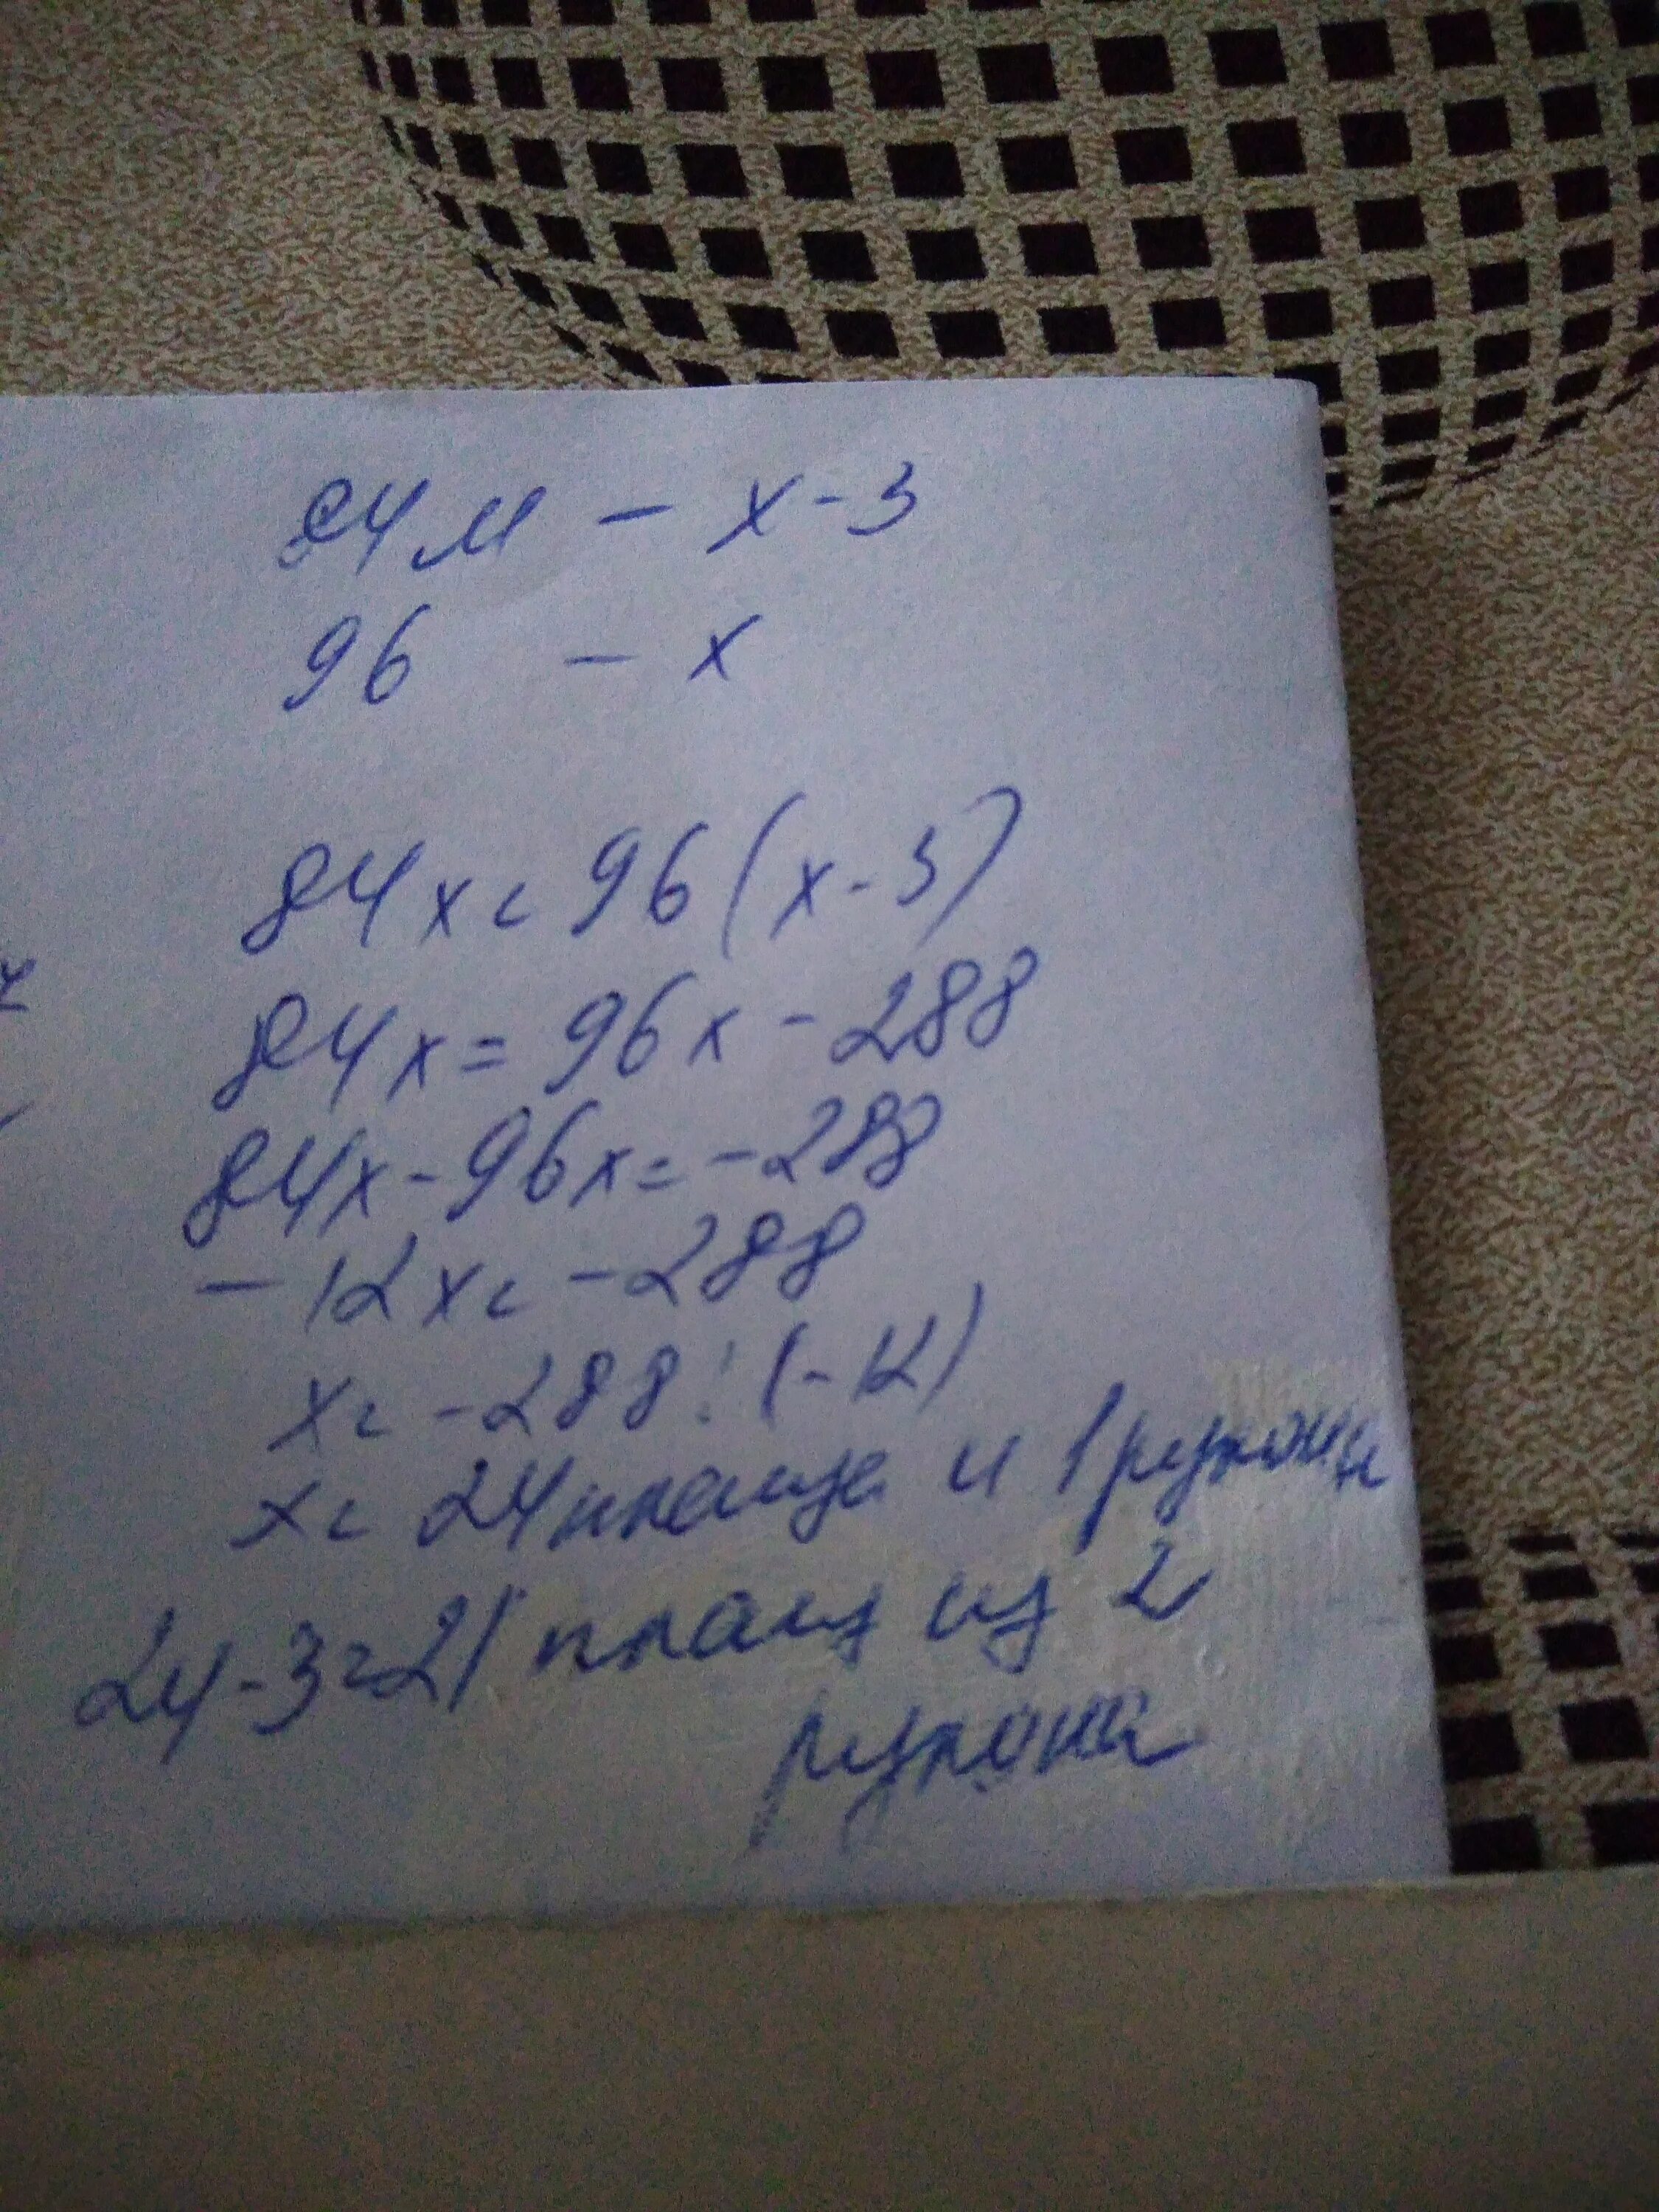 84м - х-3
96 - х
84х = 96(х-3)
84х = 96х - 288
84х - 96х = -288
- 12х = -288
х = -288 : (-12)
х = 24 плаща и 1 рулона
24-3=21 плащ из 2
рулона